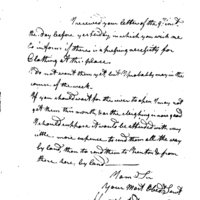 I received your letter of the 9th inst
the day before yesterday in which you wish me
to inform if there is a pressing necessity for
Clothing at this place.
I do not want them yet but probably may in the
course of the week.
If you should wait for the river to open I may not
get them this month, but the sleighing is now good
I should suppose it would be attended with very
little more expence to send them all the way
by land than to send them to Trenton & from
there here, by land
I am D Sir
your Most Obedt Servt